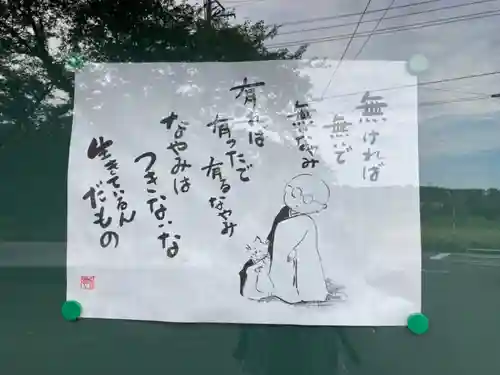 無ければ
無いで
無いなやみ
有れば
有ったで
有るなやみ
なやみは
つきないな
生きているんだもの